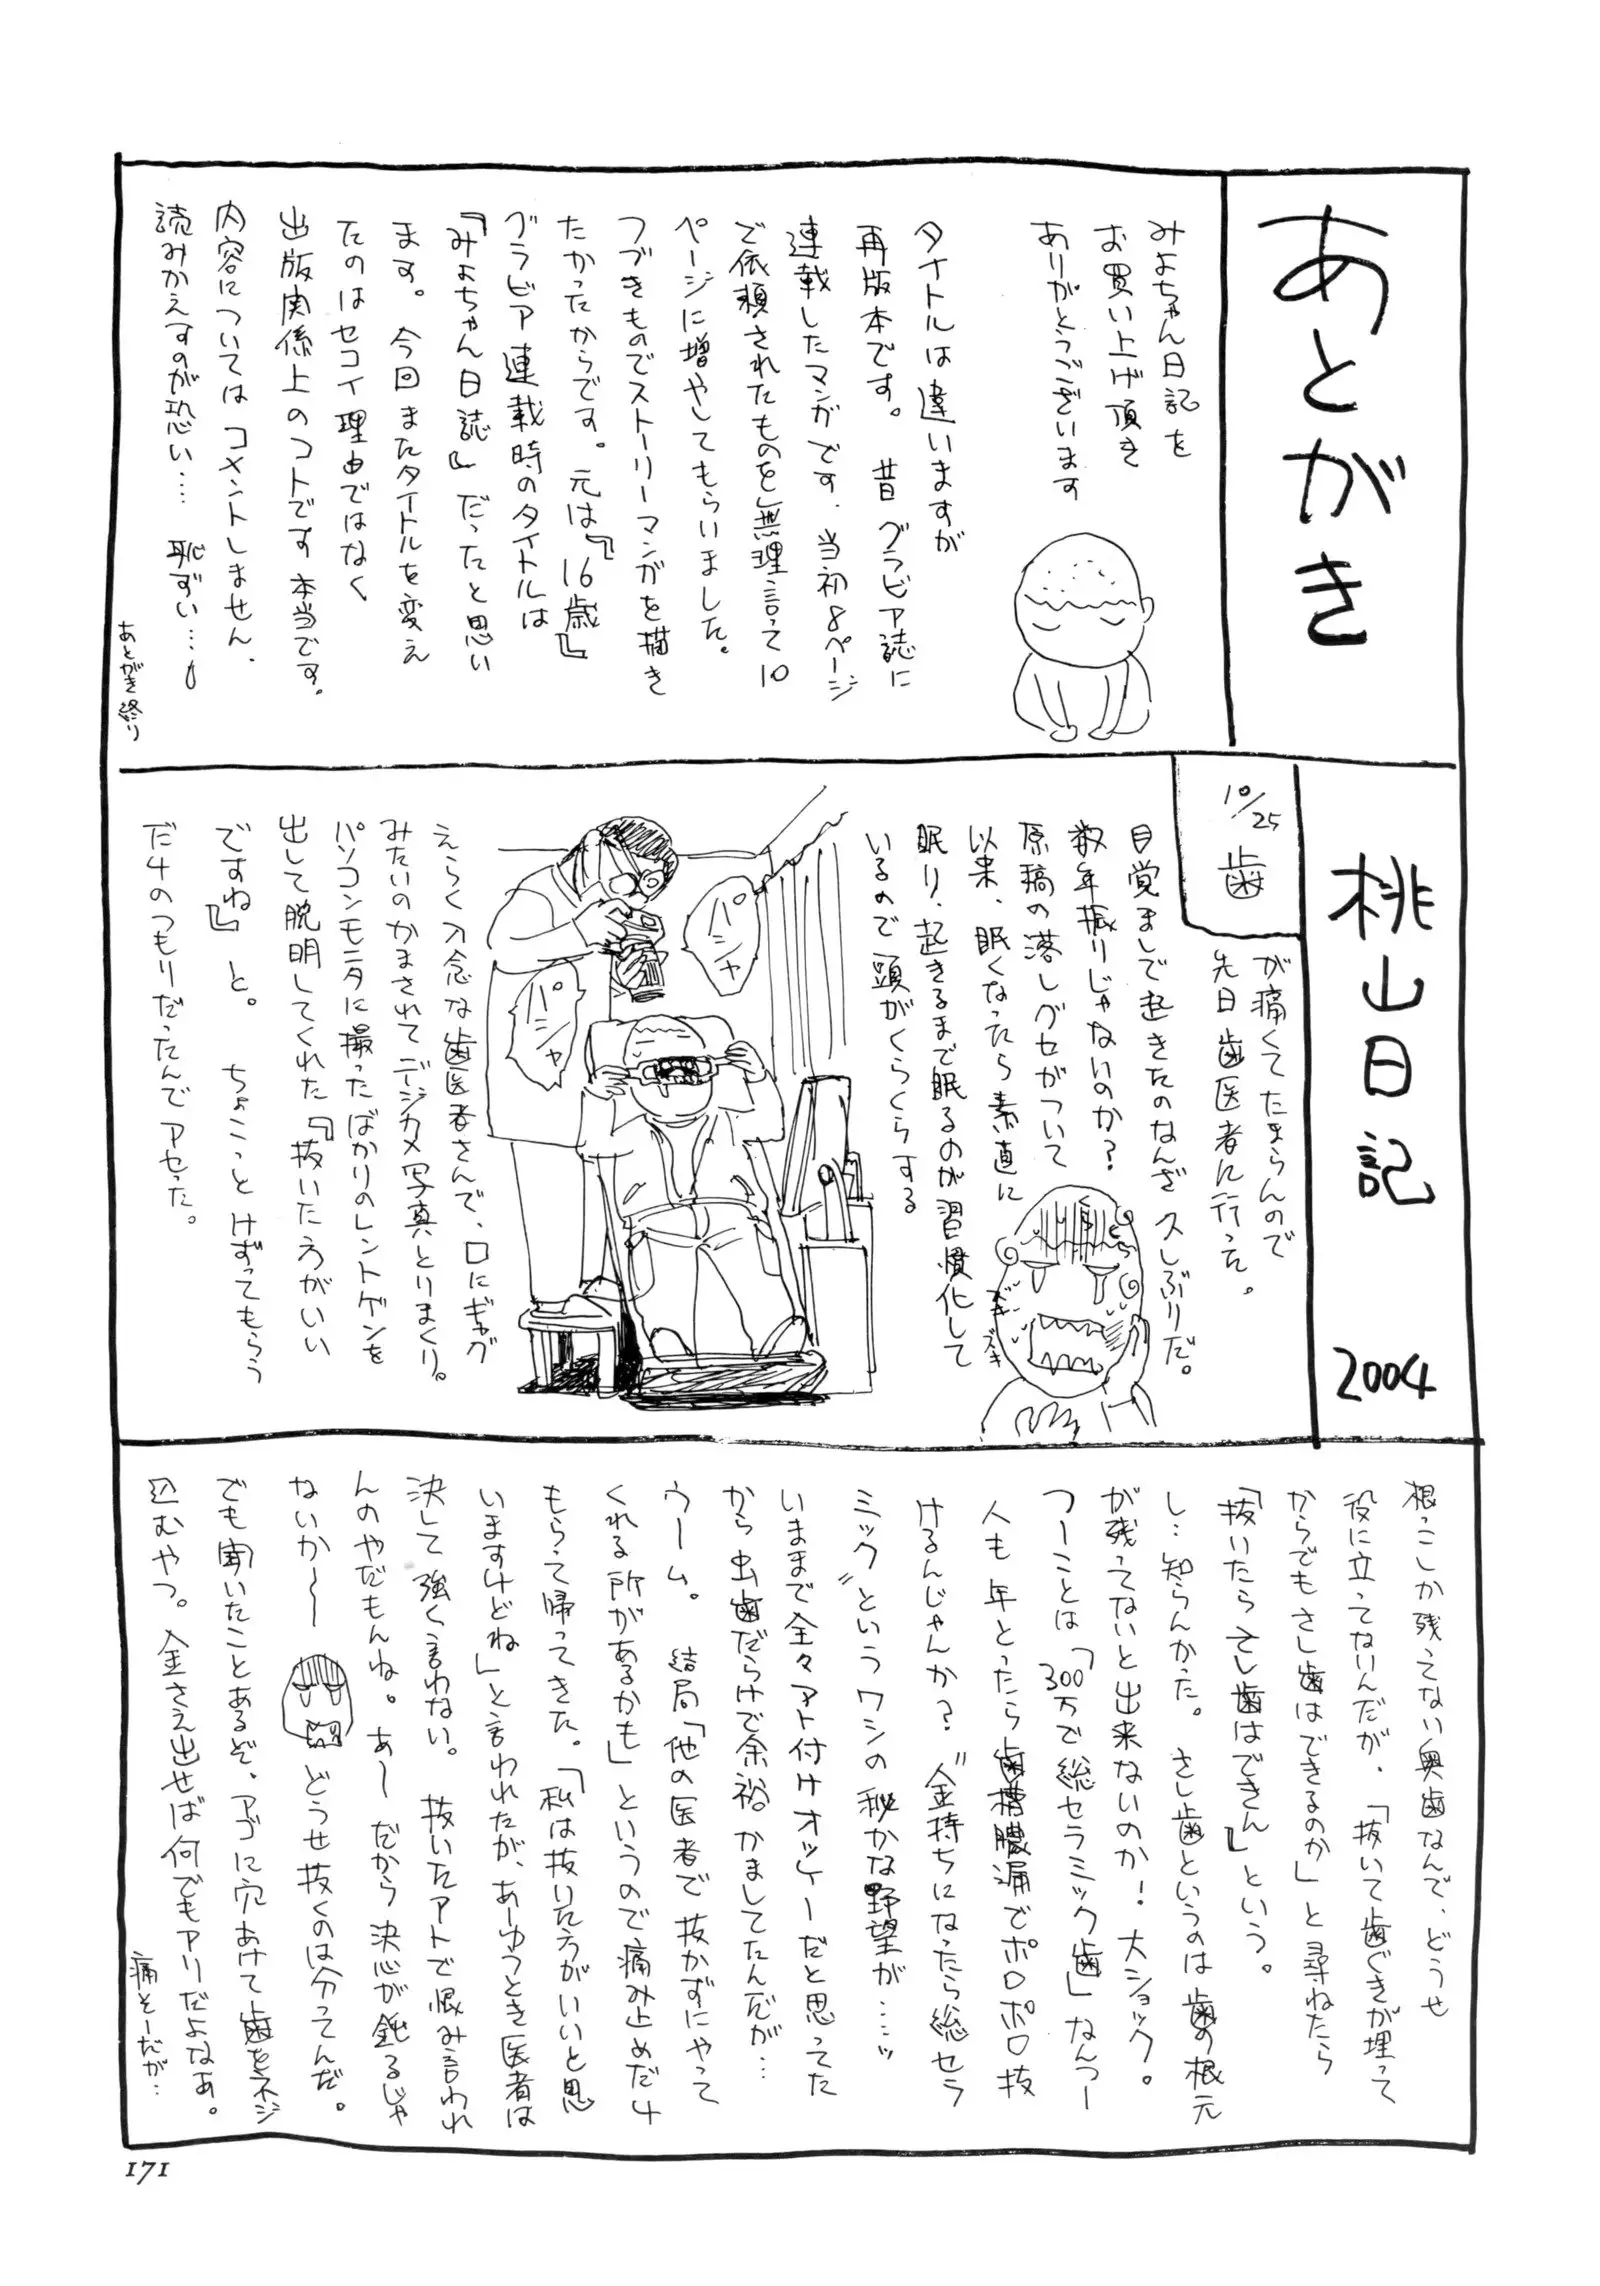 あとがき
みよちゃん日記を
お買い上げ頂き
ありがとうございます
タイトルは違いますが
再版本です。昔グラビア誌に
連載したマンガです。当初8ページ
で依頼されたものを無理言って10
ページに増やしてもらいました。
つづきものでストーリーマンガを描き
たかったからです。元は『16歳』
グラビア連載時のタイトルは
『みよちゃん日誌』だったと思い
ます。今回またタイトルを変え
たのはセコイ理由ではなく
出版関係上のコトです本当です。
内容についてはコメントしません、
読みかえすのが恐い…恥ずい…
あとがき終り
桃山日記 2004
10/25 歯
が痛くてたまらんので
先日歯医者に行った。
目覚ましで起きたのなんざ久しぶりだ。
数年振りじゃないのか?
原稿の落しグセがついて
以来、眠くなったら素直に
眠り、起きるまで眠るのが習慣化して
いるので頭がくらくらする
ズキ
ズキ
パシャ
パシャ
えらく入念な歯医者さんで、口にギャグ
みたいのかまされてデジカメ写真とりまくり。
パソコンモニタに撮ったばかりのレントゲンを
出して説明してくれた『抜いたろがいい
ですね』と。ちょこっとけずってもらう
だ4のつもりだったんでアセった。
根っこしか残ってない奥歯なんで、どうせ
役に立ってないんだが、「抜いて歯ぐきが埋って
からでもさし歯はできるのか」と尋ねたら
「抜いたらさし歯はできん」という。
し…知らんかった。さし歯というのは歯の根元
が残ってないと出来ないのか!大ショック。
つーことは「300万で総セラミック歯」なんつー
人も年とったら歯槽膿漏でポロポロ抜
けるんじゃんか?〝金持ちになったら総セラ
ミック〟というワシの秘かな野望が……ッ
いままで全々アト付けオッケーだと思ってた
から虫歯だらけで余裕かましてたんだが…
ウーム。結局「他の医者で抜かずにやって
くれる所があるかも」というので痛み止めだ4
もらって帰ってきた。「私は抜いた方がいいと思
いますけどね」と言われたが、あーゆうとき医者は
決して強く言わない。抜いたアトで恨み言われ
んのやだもんね。あー だから決心が鈍るじゃ
ないか〜〜 どうせ抜くのは分ってんだ。
でも聞いたことあるぞ、アゴに穴あけて歯をネジ
込むやつ。金さえ出せば何でもアリだよなあ。
痛そーだが…
171